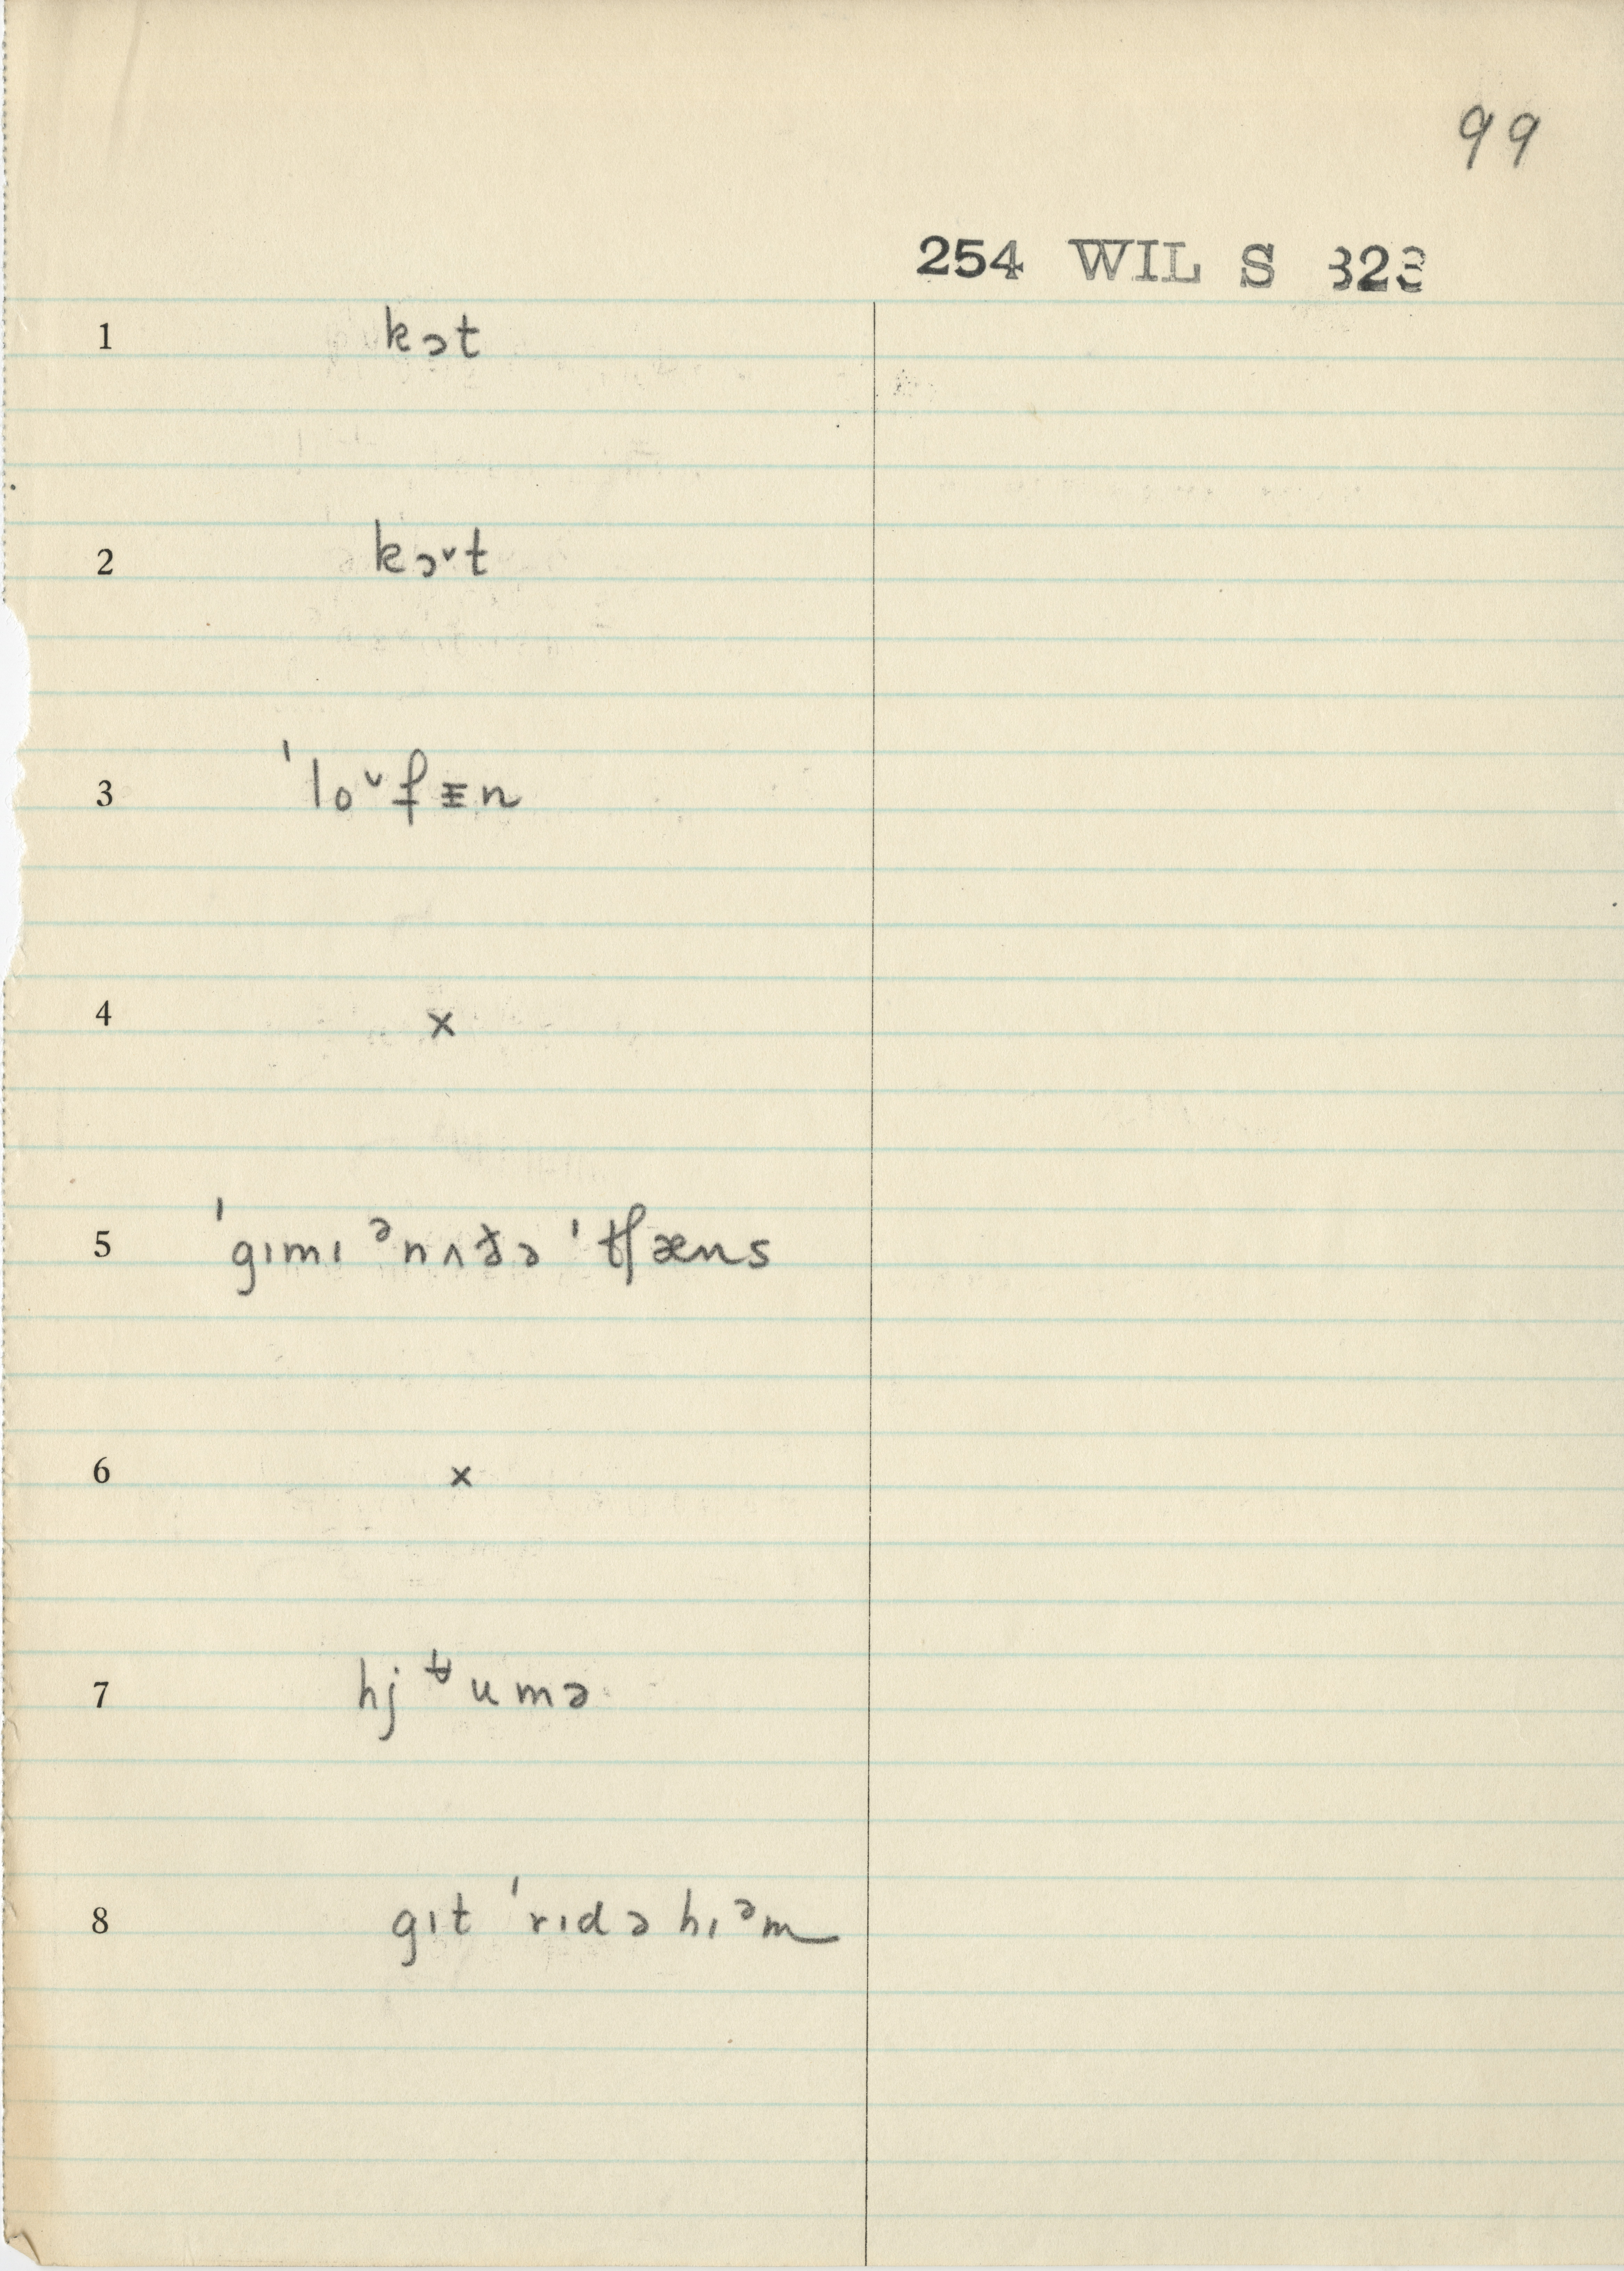 99
254 WIL S 323
1 kɔt
2 kɔ˅t
3 ˈlo˅fᵻn
4 ×
5 ˈgɪmɪ ᵊnʌðə ˈʧæns
6 ×
7 hjᵿumə
8 gɪt ˈrɪdə hɪᵊm